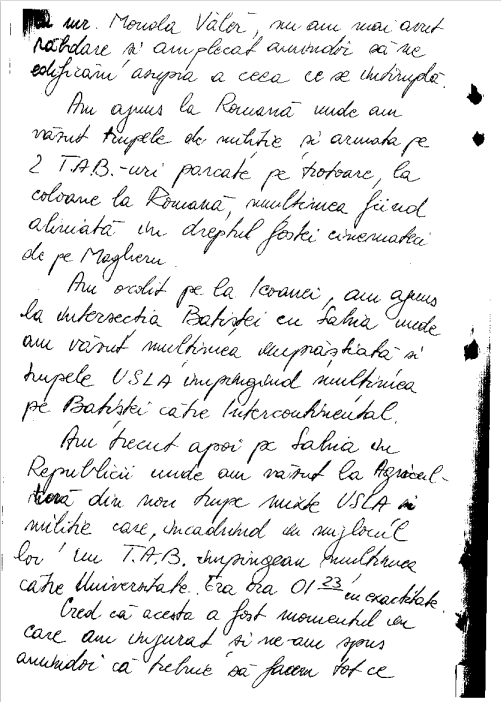 nr. Monola Vâlor, nu am mai avut
răbdare și am plecat amândoi să ne
edificăm asupra a ceea ce se întîmplă.
Am ajuns la Romană unde am
văzut trupele de miliție și armata pe
2 T.A.B.-uri parcate pe trotoare, la
coloane la Romană, mulțimea fiind
aliniată în dreptul fostei cinemateci
de pe Magheru
Am ocolit pe la Icoanei, am ajuns
la intersecția Batiștei cu Sahia unde
am văzut mulțimea împrăștiată și
trupele USLA împingînd mulțimea
pe Batiștei către Intercontinental.
Am trecut apoi pe Sahia în
Republicii unde am văzut la Agricul-
tură din nou trupe mixte USLA și
miliție care, încadrînd în mijlocul
lor un T.A.B. împingeau mulțimea
către Universitate. Era ora 01 23 cu exactitate.
Cred că acesta a fost momentul în
care am înjurat și ne-am spus
amîndoi că trebuie să facem tot ce